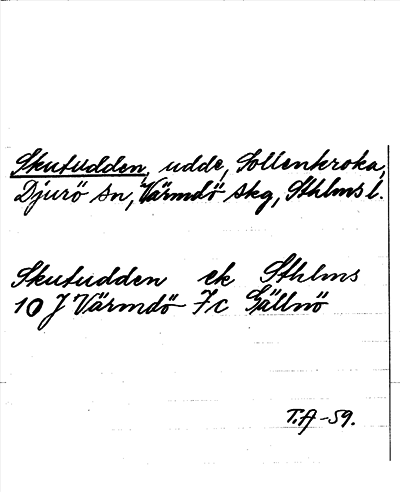 Skutudden, udde, Sollenkroka,
Djurö sn, Värmdö skg, Sthlms l.
Skutudden ek Sthlms
10 J Värmdö 7c Gällnö
T.A -59.